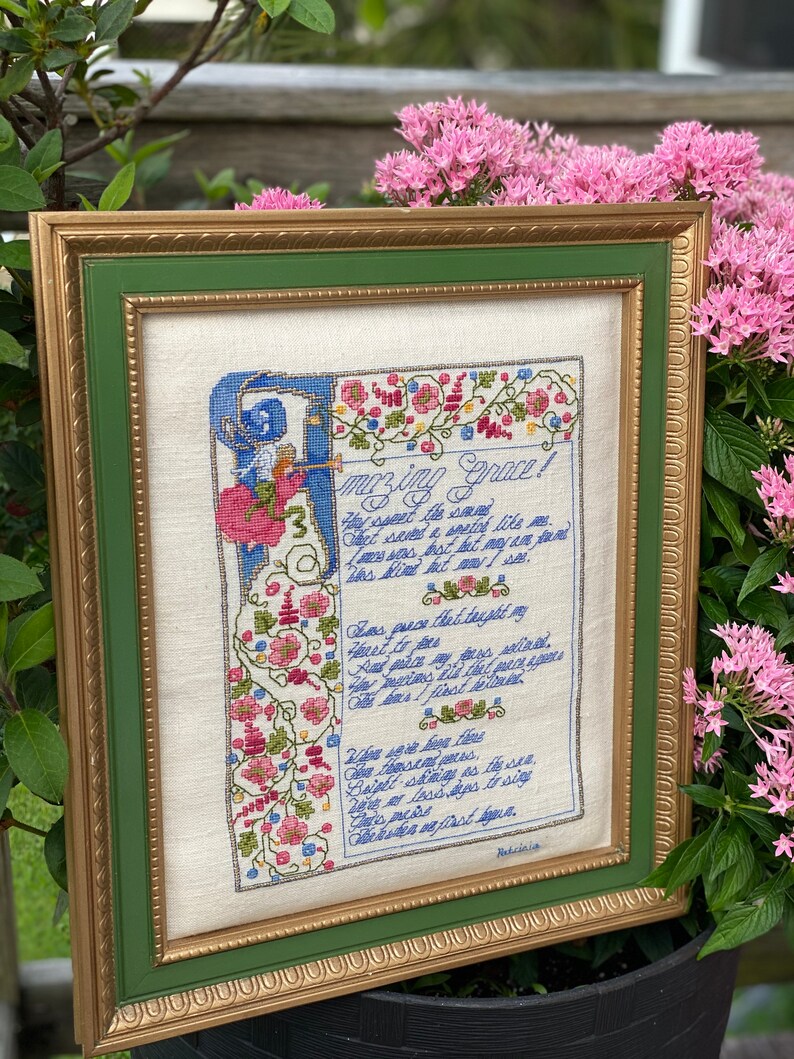 Amazing Grace!
How sweet the sound
That saves a wretch like me.
I once was lost but now am found
Was blind but now I see.
Twas grace that taught my
Heart to fear
And grace my fears relieved.
How precious did that grace appear
The hour I first believed.
When we've been there
Ten thousand years,
Bright shining as the sun,
We've no less days to sing
God's praise
Than when we first begun.
Patricia